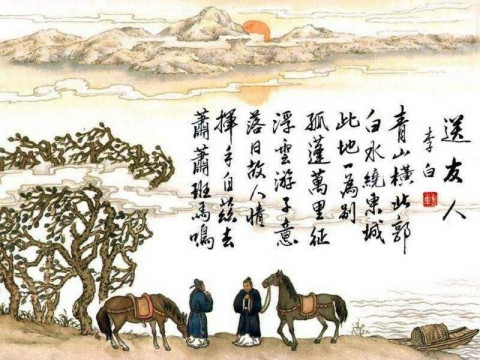 送友人
李白
青山橫北郭
白水繞東城
此地一為別
孤蓬萬里征
浮雲游子意
落日故人情
揮手自茲去
蕭蕭班馬鳴